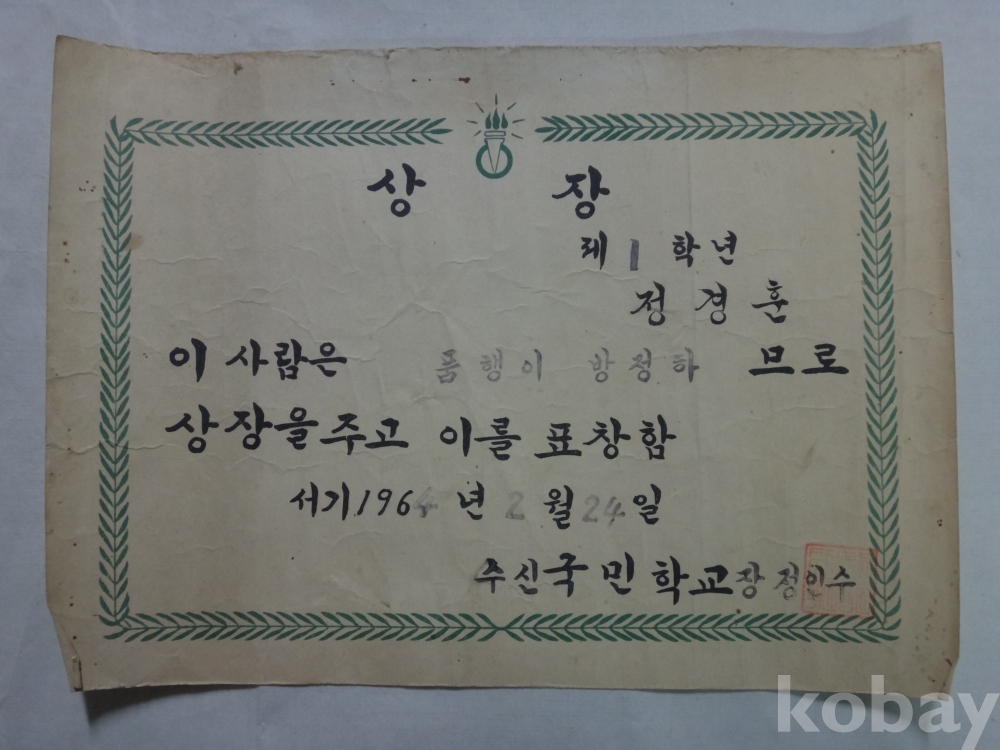 상 장
제 1 학년
정 경 훈
이 사람은 품행이 방정하 므로
상장을 주고 이를 표창함
서기 1964년 2월 24일
수신국민학교장 정인수
kobay